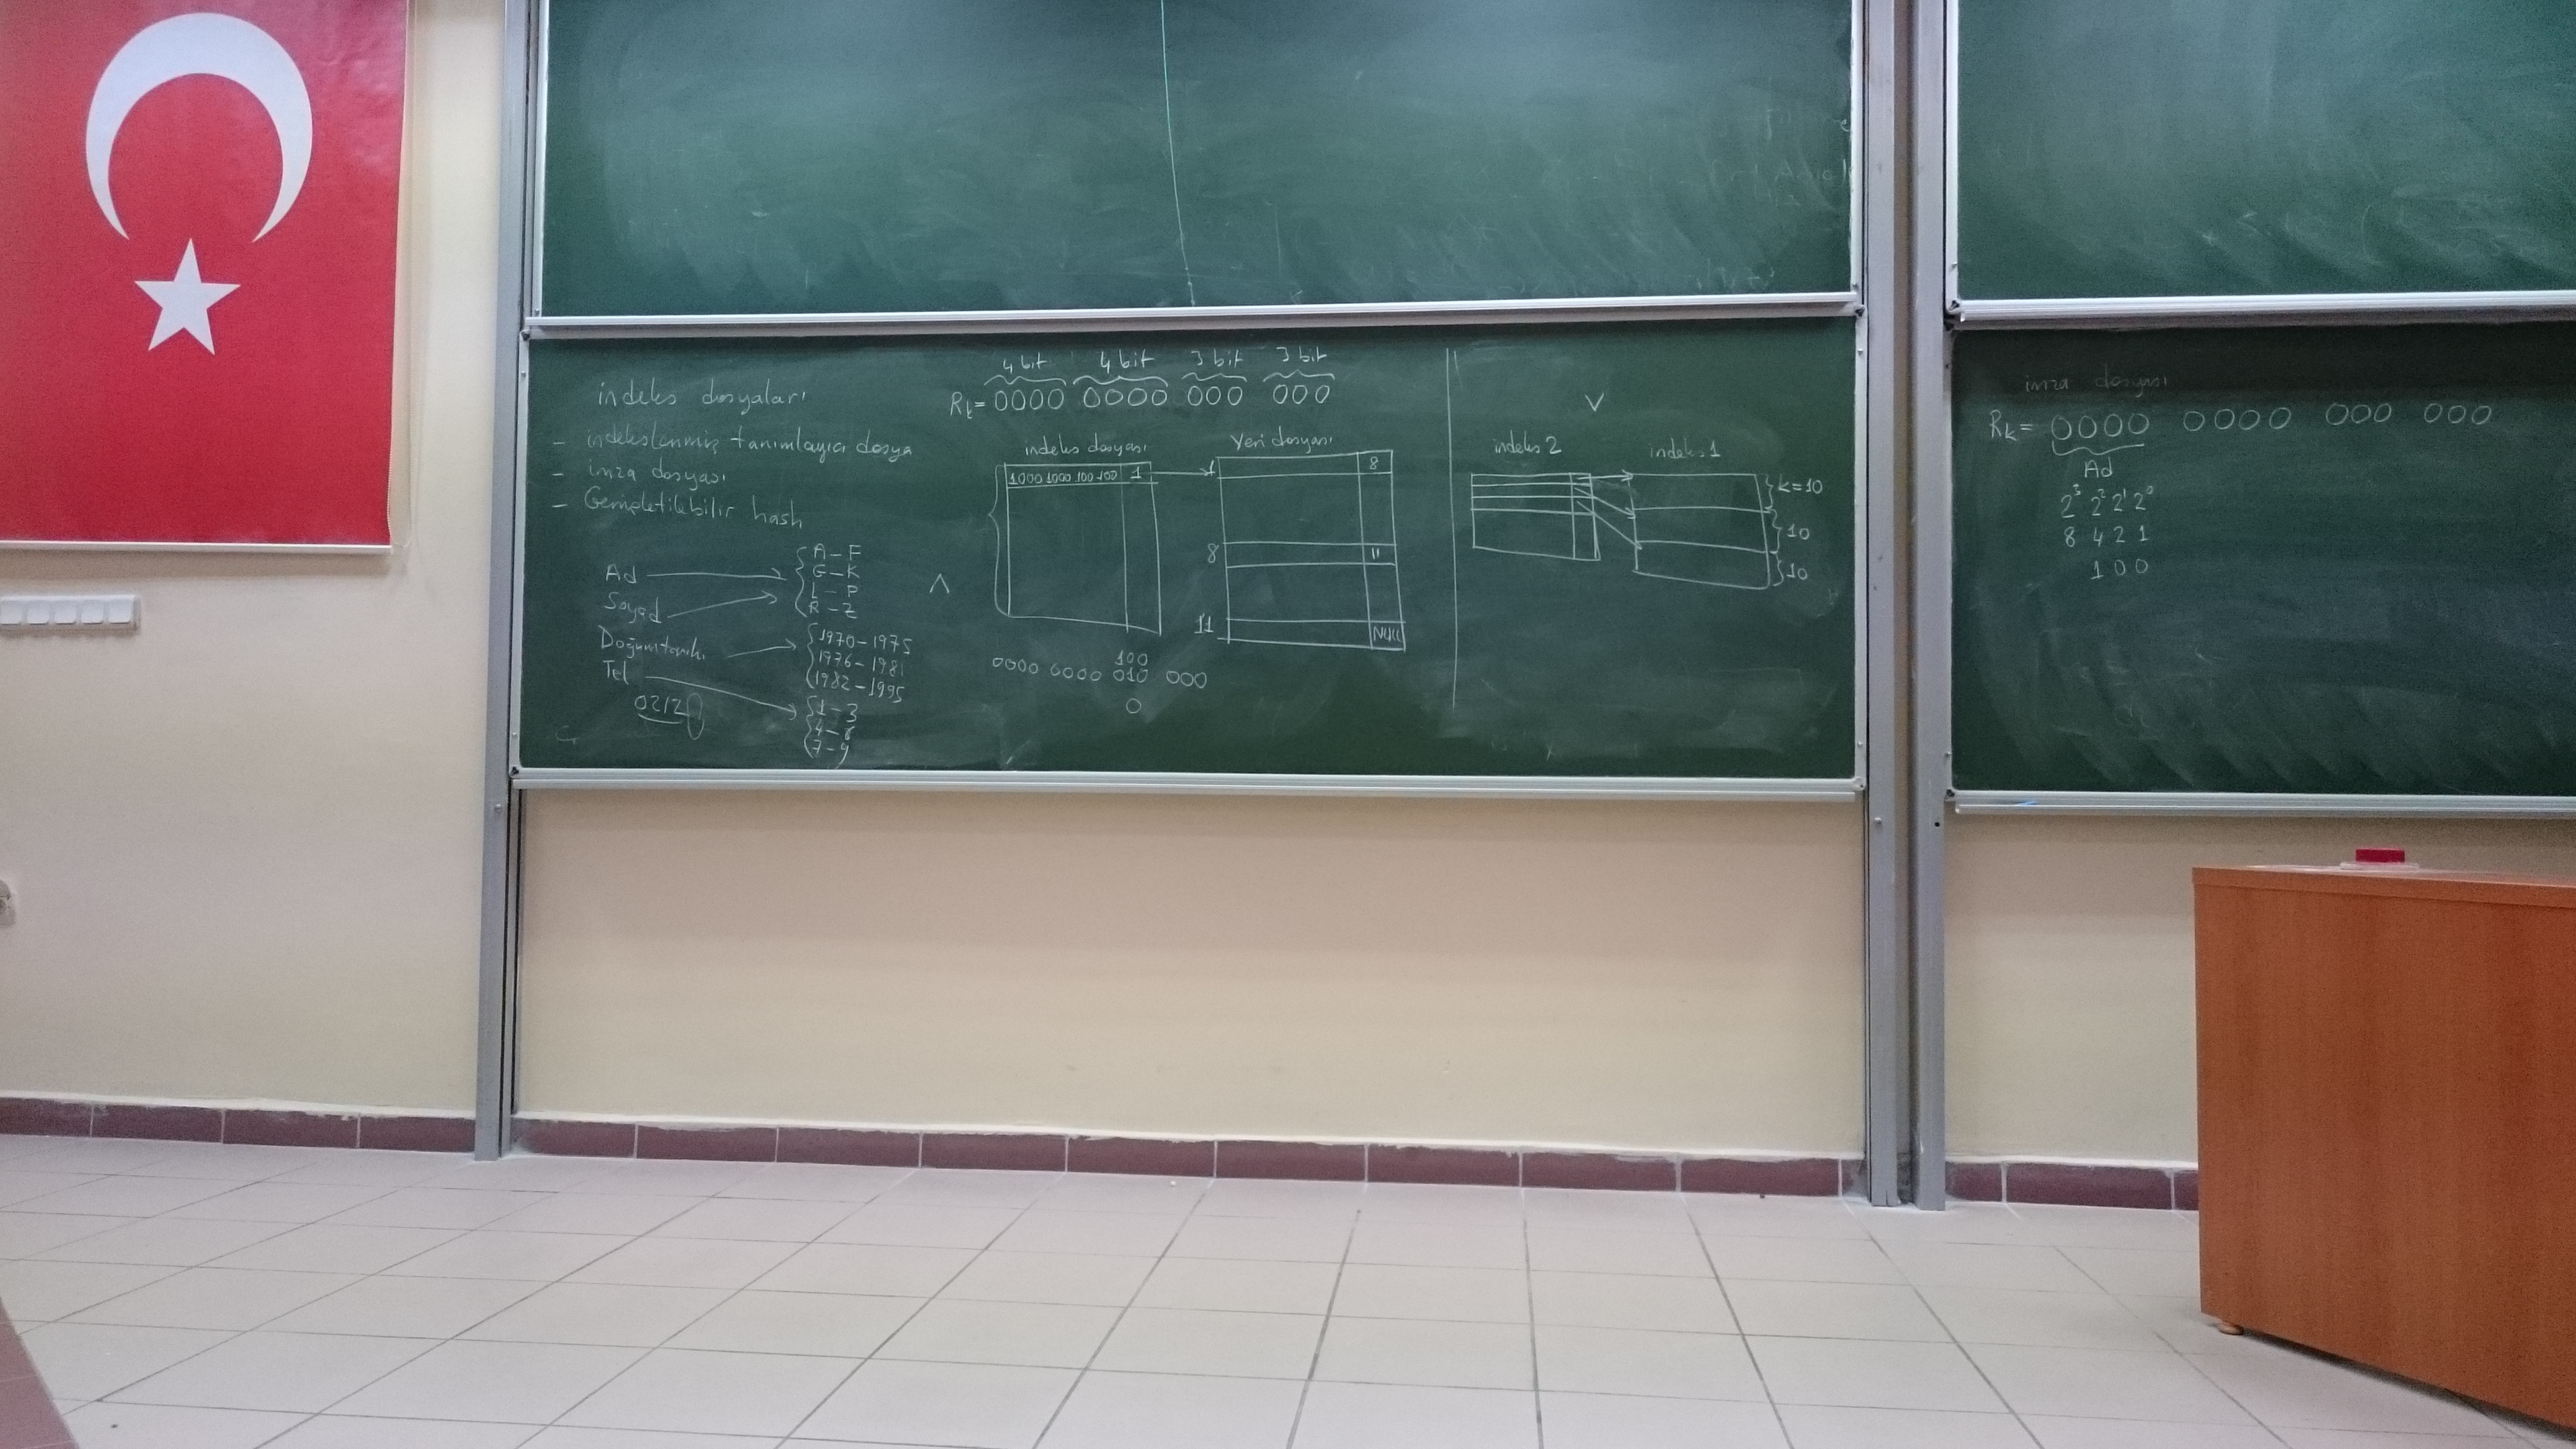 indeks dosyaları
- indekslenmiş tanımlayıcı dosya
- imza dosyası
- Genişletilebilir hash
Ad
Soyad
Doğum tarihi
Tel
0212
A-F
G-K
L-P
R-Z
1970-1975
1976-1981
1982-1995
1-3
4-6
7-9
4 bit 4 bit 3 bit 3 bit
Rk= 0000 0000 000 000
Λ
indeks dosyası
1000 1000 100 100 1
Veri dosyası
1 8
8 11
11 NULL
100
0000 0000 010 000
0
V
indeks 2 indeks 1
k=10
10
10
imza dosyası
Rk= 0000 0000 000 000
Ad
2³ 2² 2¹ 2⁰
8 4 2 1
1 0 0